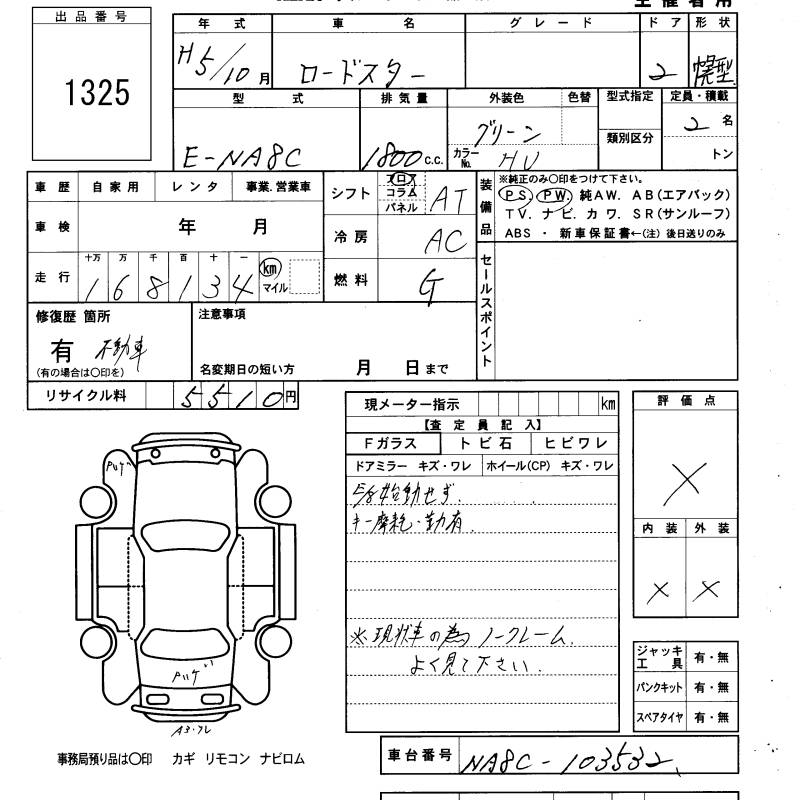 出品番号
1325
主催者用
年式 車名 グレード ドア 形状
H5/10月 ロードスター 2 幌型
型式 排気量 外装色 色替 型式指定 定員・積載
E-NA8C 1800c.c. グリーン 類別区分 2名
カラーNo. HU トン
車歴 自家用 レンタ 事業.営業車
車検 年 月
走行 十万 万 千 百 十 一
168134 km マイル
シフト フロア コラム パネル AT
冷房 AC
燃料 G
装備品
※純正のみ○印をつけて下さい。
PS. PW. 純AW. AB(エアバック)
TV. ナビ. カワ. SR(サンルーフ)
ABS ・ 新車保証書←(注)後日送りのみ
セールスポイント
修復歴 箇所
有 不動車
(有の場合は○印を)
注意事項
名変期日の短い方 月 日まで
リサイクル料 5510円
現メーター指示 km
【査定員記入】
Fガラス トビ石 ヒビワレ
ドアミラー キズ・ワレ ホイール(CP) キズ・ワレ
始動せず.
キー摩耗・勤有
※現状車の為ノークレーム.
よく見て下さい.
評価点
X
内装 外装
X X
ジャッキ工具 有・無
パンクキット 有・無
スペアタイヤ 有・無
Pハゲ
Pハゲ
A3・ワレ
事務局預り品は○印 カギ リモコン ナビロム
車台番号 NA8C-103532